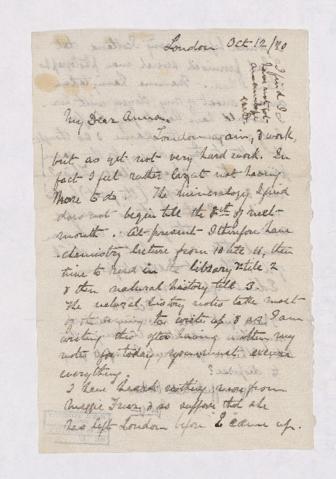 London Oct. 12/80
I find I
have not got
My Dear Anna.
London again, & work,
but as yet not very hard work. In
fact I feel rather lazy at not having
more to do. The mineralogy I find
does not begin till the 8th of next
month. At present I therefore have
chemistry lecture from 10 till 11, then
time to read in the library till 2
& then natural history till 3.
The natural history notes take most
of the evening to write up & as I am
writing this after having written my
notes for today you must excuse
everything.
I have heard nothing more from
Maggie & so suppose that she
has left London before I came up.